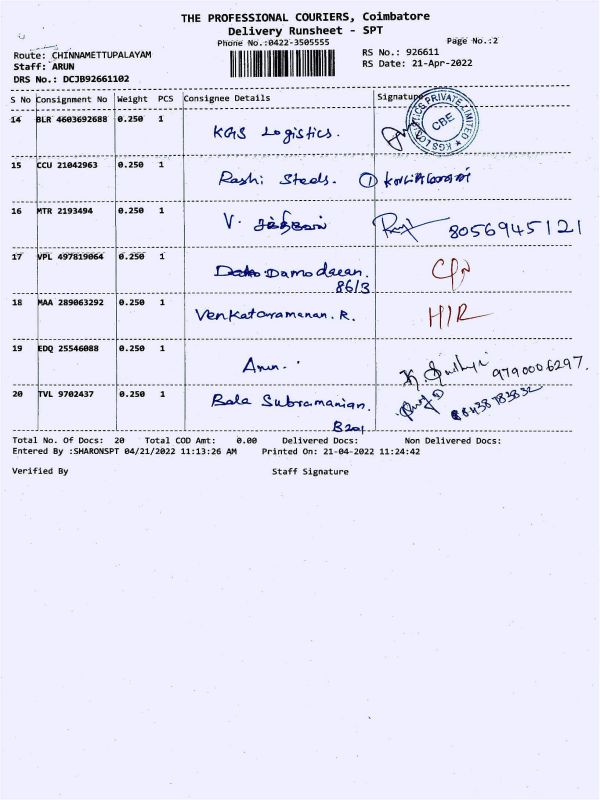 THE PROFESSIONAL COURIERS, Coimbatore
Delivery Runsheet - SPT
Phone No.:0422-3505555
Page No.:2
Route: CHINNAMETTUPALAYAM
Staff: ARUN
DRS No.: DCJB92661102
RS No.: 926611
RS Date: 21-Apr-2022
S No Consignment No Weight PCS Consignee Details Signature
14 BLR 4603692688 0.250 1 KGS Logistics.
KGS LOGISTICS PRIVATE LIMITED ★ CBE
15 CCU 21042963 0.250 1 Rashi Steels. ①
16 MTR 2193494 0.250 1 V. 8056945121
17 VPL 497819064 0.250 1 Damodaran.
86/3
18 MAA 289063292 0.250 1 Venkataramanan. R. H/R
19 EDQ 25546088 0.250 1 Arun. K. 9790006297.
20 TVL 9702437 0.250 1 Bala Subramanian.
B201
Total No. Of Docs: 20 Total COD Amt: 0.00 Delivered Docs: Non Delivered Docs:
Entered By :SHARONSPT 04/21/2022 11:13:26 AM Printed On: 21-04-2022 11:24:42
Verified By Staff Signature